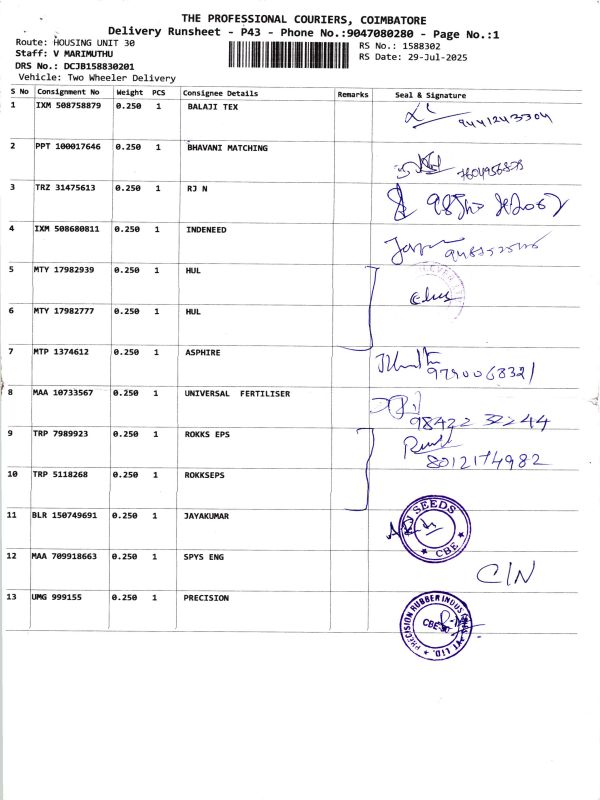 THE PROFESSIONAL COURIERS, COIMBATORE
Delivery Runsheet - P43 - Phone No.:9047080280 - Page No.:1
Route: HOUSING UNIT 30
Staff: V MARIMUTHU
DRS No.: DCJB158830201
Vehicle: Two Wheeler Delivery
RS No.: 1588302
RS Date: 29-Jul-2025
S No Consignment No Weight PCS Consignee Details Remarks Seal & Signature
1 IXM 508758879 0.250 1 BALAJI TEX
9441243304
2 PPT 100017646 0.250 1 BHAVANI MATCHING
3 TRZ 31475613 0.250 1 RJ N
4 IXM 508680811 0.250 1 INDENEED
5 MTY 17982939 0.250 1 HUL
6 MTY 17982777 0.250 1 HUL
7 MTP 1374612 0.250 1 ASPHIRE
9790068321
8 MAA 10733567 0.250 1 UNIVERSAL FERTILISER
98422 32244
9 TRP 7989923 0.250 1 ROKKS EPS
8012174982
10 TRP 5118268 0.250 1 ROKKSEPS
11 BLR 150749691 0.250 1 JAYAKUMAR
KV SEEDS
★ CBE ★
12 MAA 709918663 0.250 1 SPYS ENG
C/N
13 UMG 999155 0.250 1 PRECISION